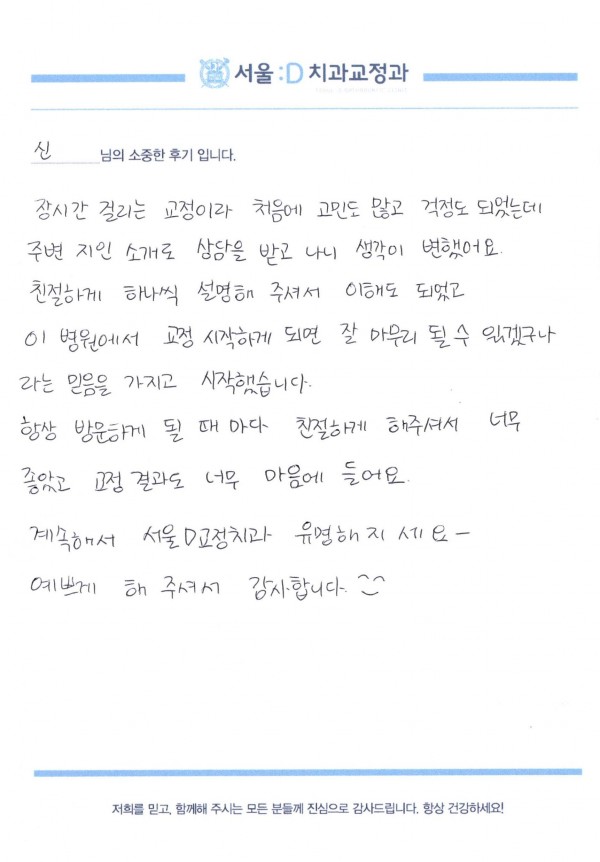 서울:D 치과교정과
신 님의 소중한 후기 입니다.
장시간 걸리는 교정이라 처음에 고민도 많고 걱정도 되었는데
주변 지인 소개로 상담을 받고 나니 생각이 변했어요.
친절하게 하나씩 설명해 주셔서 이해도 되었고
이 병원에서 교정 시작하게 되면 잘 마무리 될 수 있겠구나
라는 믿음을 가지고 시작했습니다.
항상 방문하게 될 때 마다 친절하게 해주셔서 너무
좋았고 교정 결과도 너무 마음에 들어요.
계속해서 서울D교정치과 유명해지세요-
예쁘게 해 주셔서 감사합니다. ^^
저희를 믿고, 함께해 주시는 모든 분들께 진심으로 감사드립니다. 항상 건강하세요!